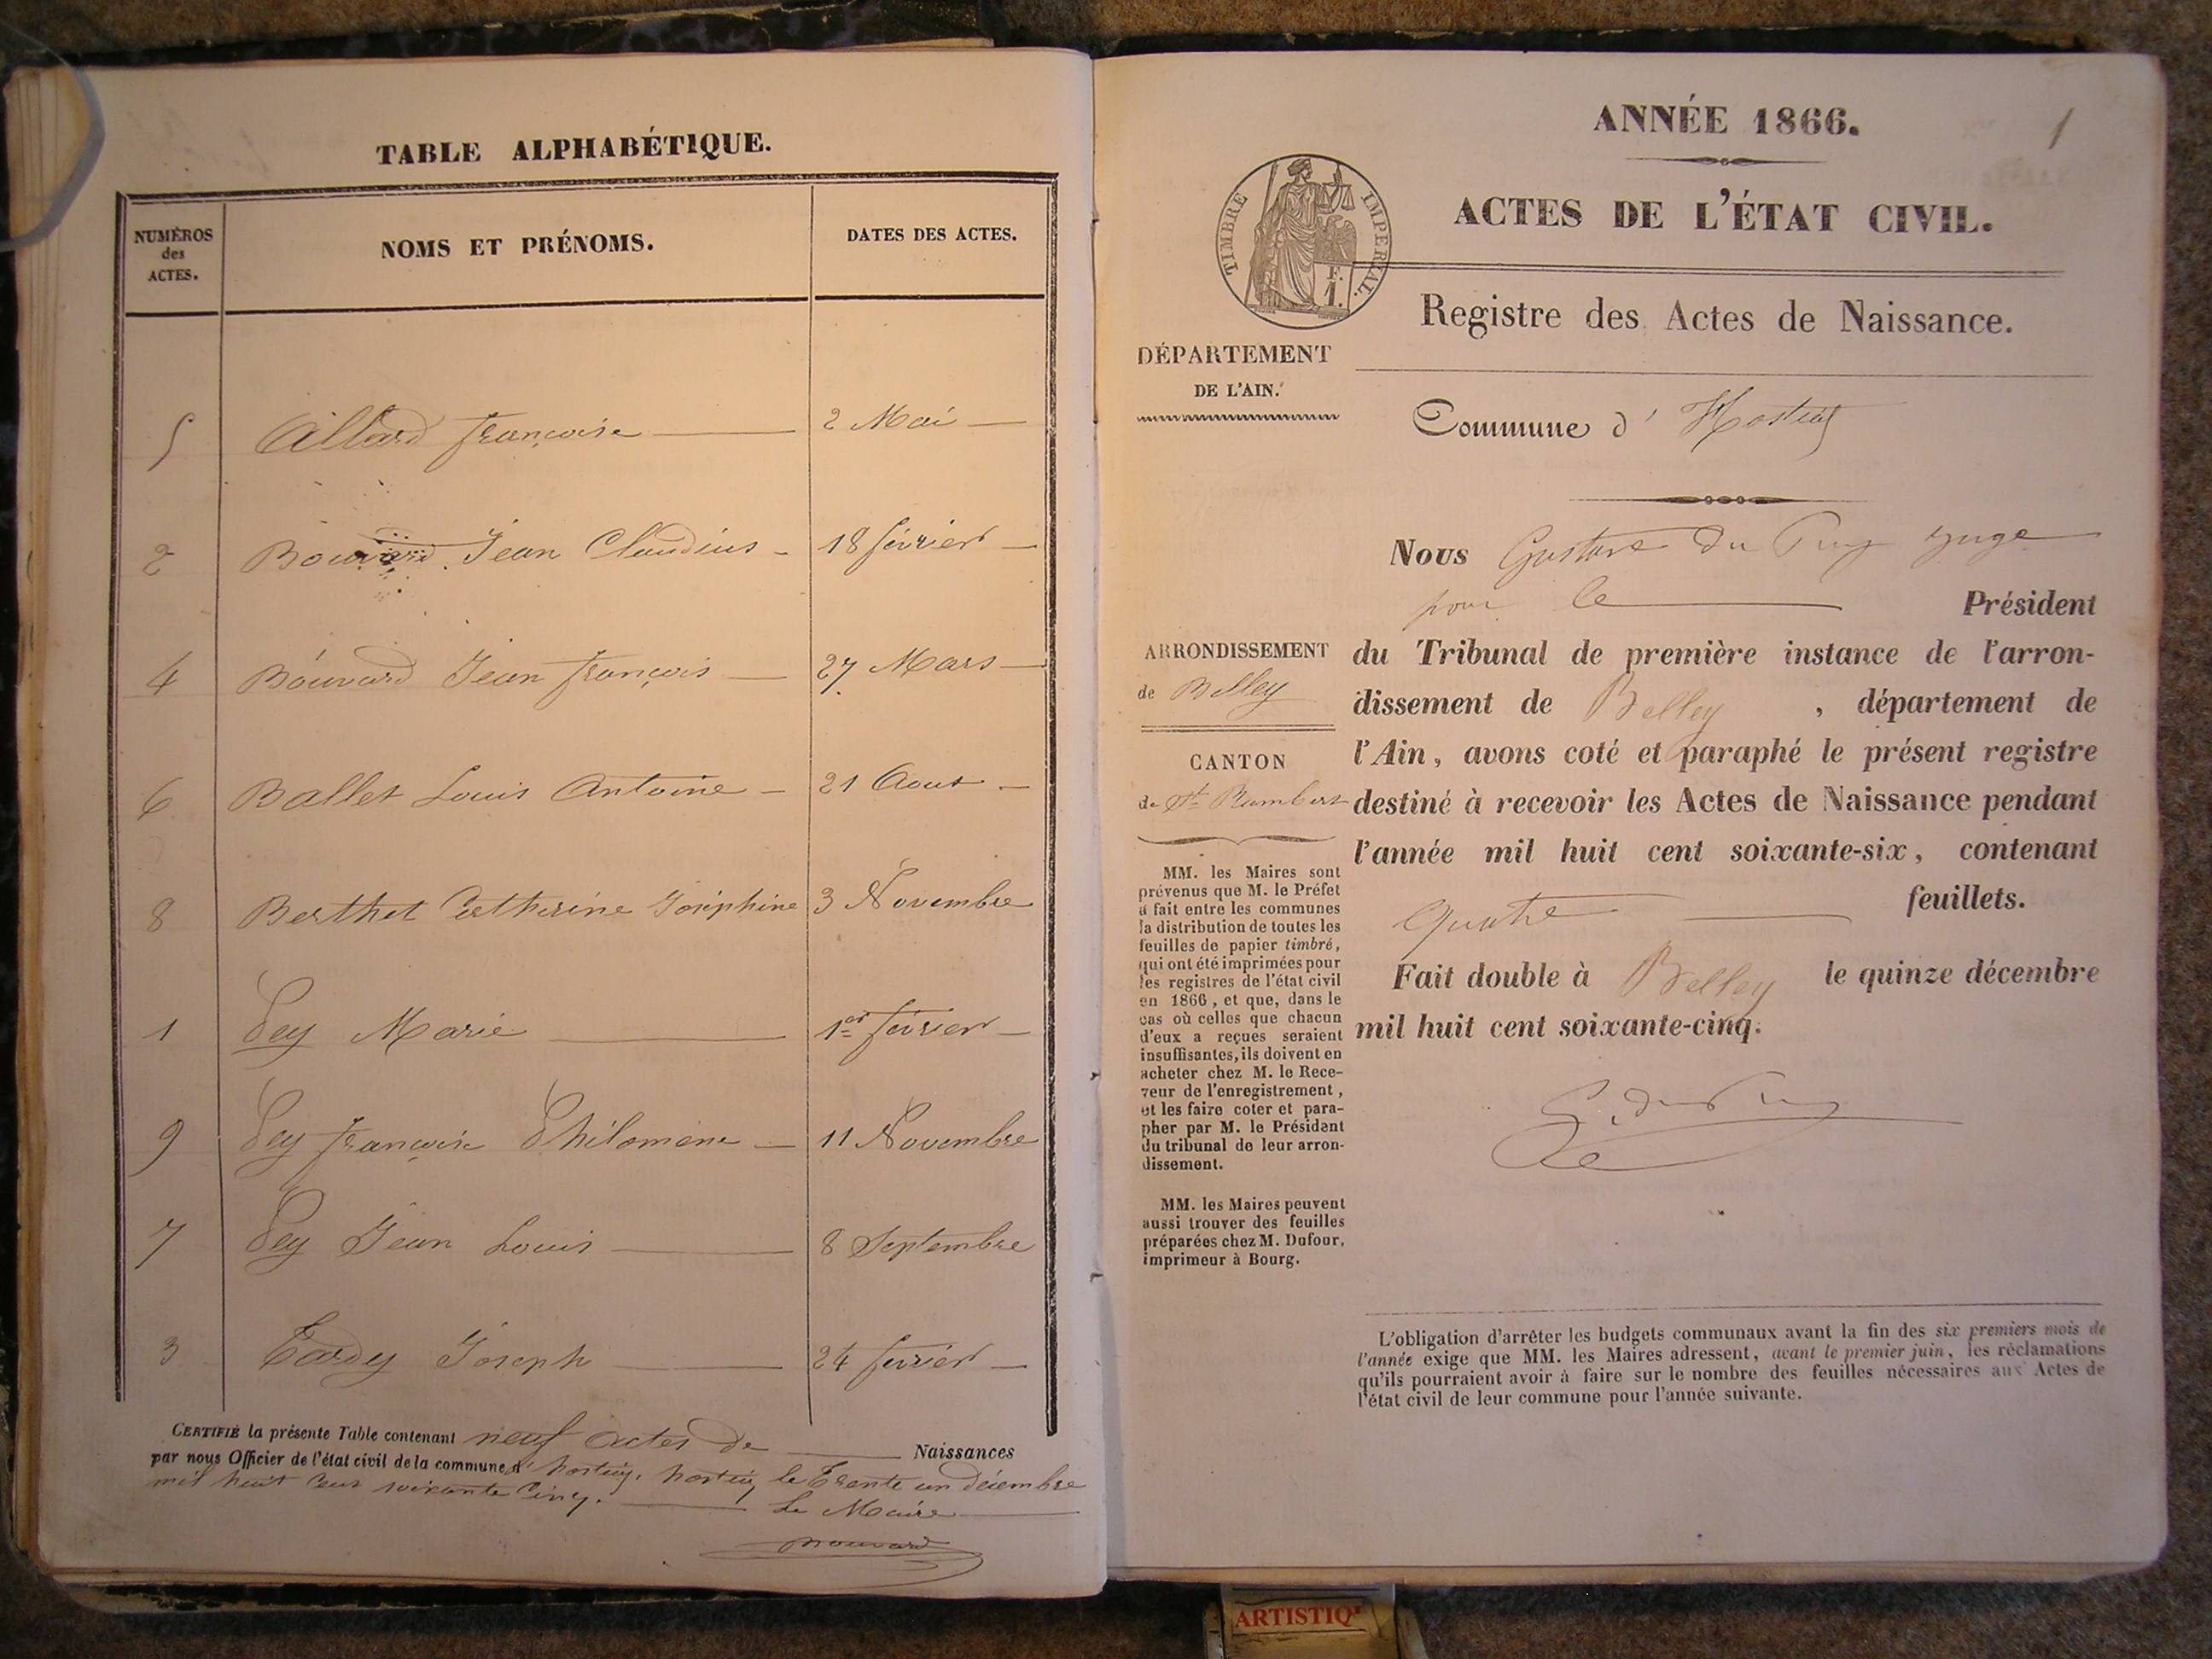 TABLE ALPHABÉTIQUE.
NUMÉROS des ACTES.
NOMS ET PRÉNOMS.
DATES DES ACTES.
5 Allard françoise 2 Mai
2 Bouvard Jean Claudius 18 février
4 Bouvard Jean françois 27 Mars
6 Ballet Louis Antoine 21 Aout
8 Berthet Catherine Joséphine 3 Novembre
1 Pey Marie 1er février
9 Pey françoise Philomène 11 Novembre
7 Pey Jean Louis 8 Septembre
3 Tardy Joseph 24 février
CERTIFIÉ la présente Table contenant neuf actes de Naissances
par nous Officier de l'état civil de la commune d'hostiaz, hostiaz le Trente un décembre
mil huit Cent soixante Cinq.
Le Maire
Bouvard
1
ANNÉE 1866.
TIMBRE IMPÉRIAL.
F. 1.
ACTES DE L'ÉTAT CIVIL.
Registre des Actes de Naissance.
DÉPARTEMENT
DE L'AIN.
Commune d' Hostiaz
Nous Gustave du Puy juge
pour le Président
du Tribunal de première instance de l'arron-
dissement de Belley, département de
l'Ain, avons coté et paraphé le présent registre
destiné à recevoir les Actes de Naissance pendant
l'année mil huit cent soixante-six, contenant
Quatre feuillets.
Fait double à Belley le quinze décembre
mil huit cent soixante-cinq.
G. du Puy
ARRONDISSEMENT
de Belley
CANTON
de St Rambert
MM. les Maires sont
prévenus que M. le Préfet
a fait entre les communes
la distribution de toutes les
feuilles de papier timbré,
qui ont été imprimées pour
les registres de l'état civil
en 1866, et que, dans le
cas où celles que chacun
d'eux a reçues seraient
insuffisantes, ils doivent en
acheter chez M. le Rece-
veur de l'enregistrement,
et les faire coter et para-
pher par M. le Président
du tribunal de leur arron-
dissement.
MM. les Maires peuvent
aussi trouver des feuilles
préparées chez M. Dufour,
imprimeur à Bourg.
L'obligation d'arrêter les budgets communaux avant la fin des six premiers mois de
l'année exige que MM. les Maires adressent, avant le premier juin, les réclamations
qu'ils pourraient avoir à faire sur le nombre des feuilles nécessaires aux Actes de
l'état civil de leur commune pour l'année suivante.
ARTISTIQ